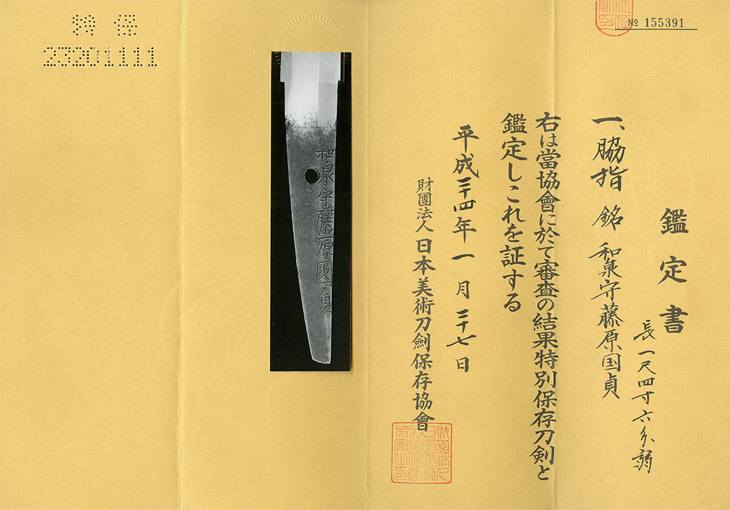 № 155391
鑑定書
一、脇指 銘 和泉守藤原国貞
長一尺四寸六分弱
右は當協會に於て審査の結果特別保存刀剣と
鑑定しこれを証する
平成二十四年一月二十七日
財團法人日本美術刀劍保存協會
和泉守藤原國貞
特保
23201111